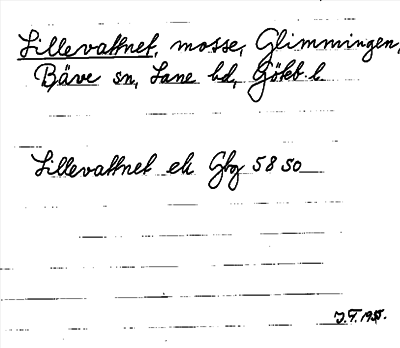 Lillevattnet, mosse, Glimmingen,
Bäve sn, Lane hd, Göteb. l.
Lillevattnet ek Gbg 58 50
J.F. 1955.